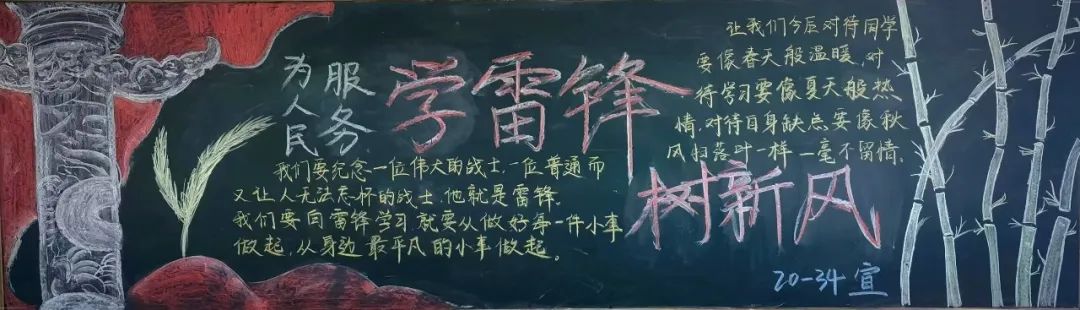 为人民
服务
学雷锋
树新风
我们要纪念一位伟大的战士,一位普通而
又让人无法忘怀的战士,他就是雷锋.
我们要向雷锋学习就要从做好每一件小事
做起,从身边最平凡的小事做起。
让我们今后对待同学
要像春天般温暖,对
待学习要像夏天般热
情,对待自身缺点要像秋
风扫落叶一样一毫不留情.
20-34 宣